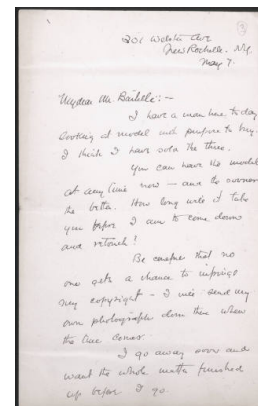 301 Webster Ave
New Rochelle. N.Y.
May 7.
My dear Mr.
I have a man here to day
looking at model with purpose to buy.
I think I have sold the three.
You can have the model
at any time now — and the sooner
the better. How long will it take
you before I am to come down
and retouch!
Be careful that no
one gets a chance to infringe
my copyright - I will send my
own photographer down there when
the time comes.
I go away soon and
want the whole matter finished
up before I go